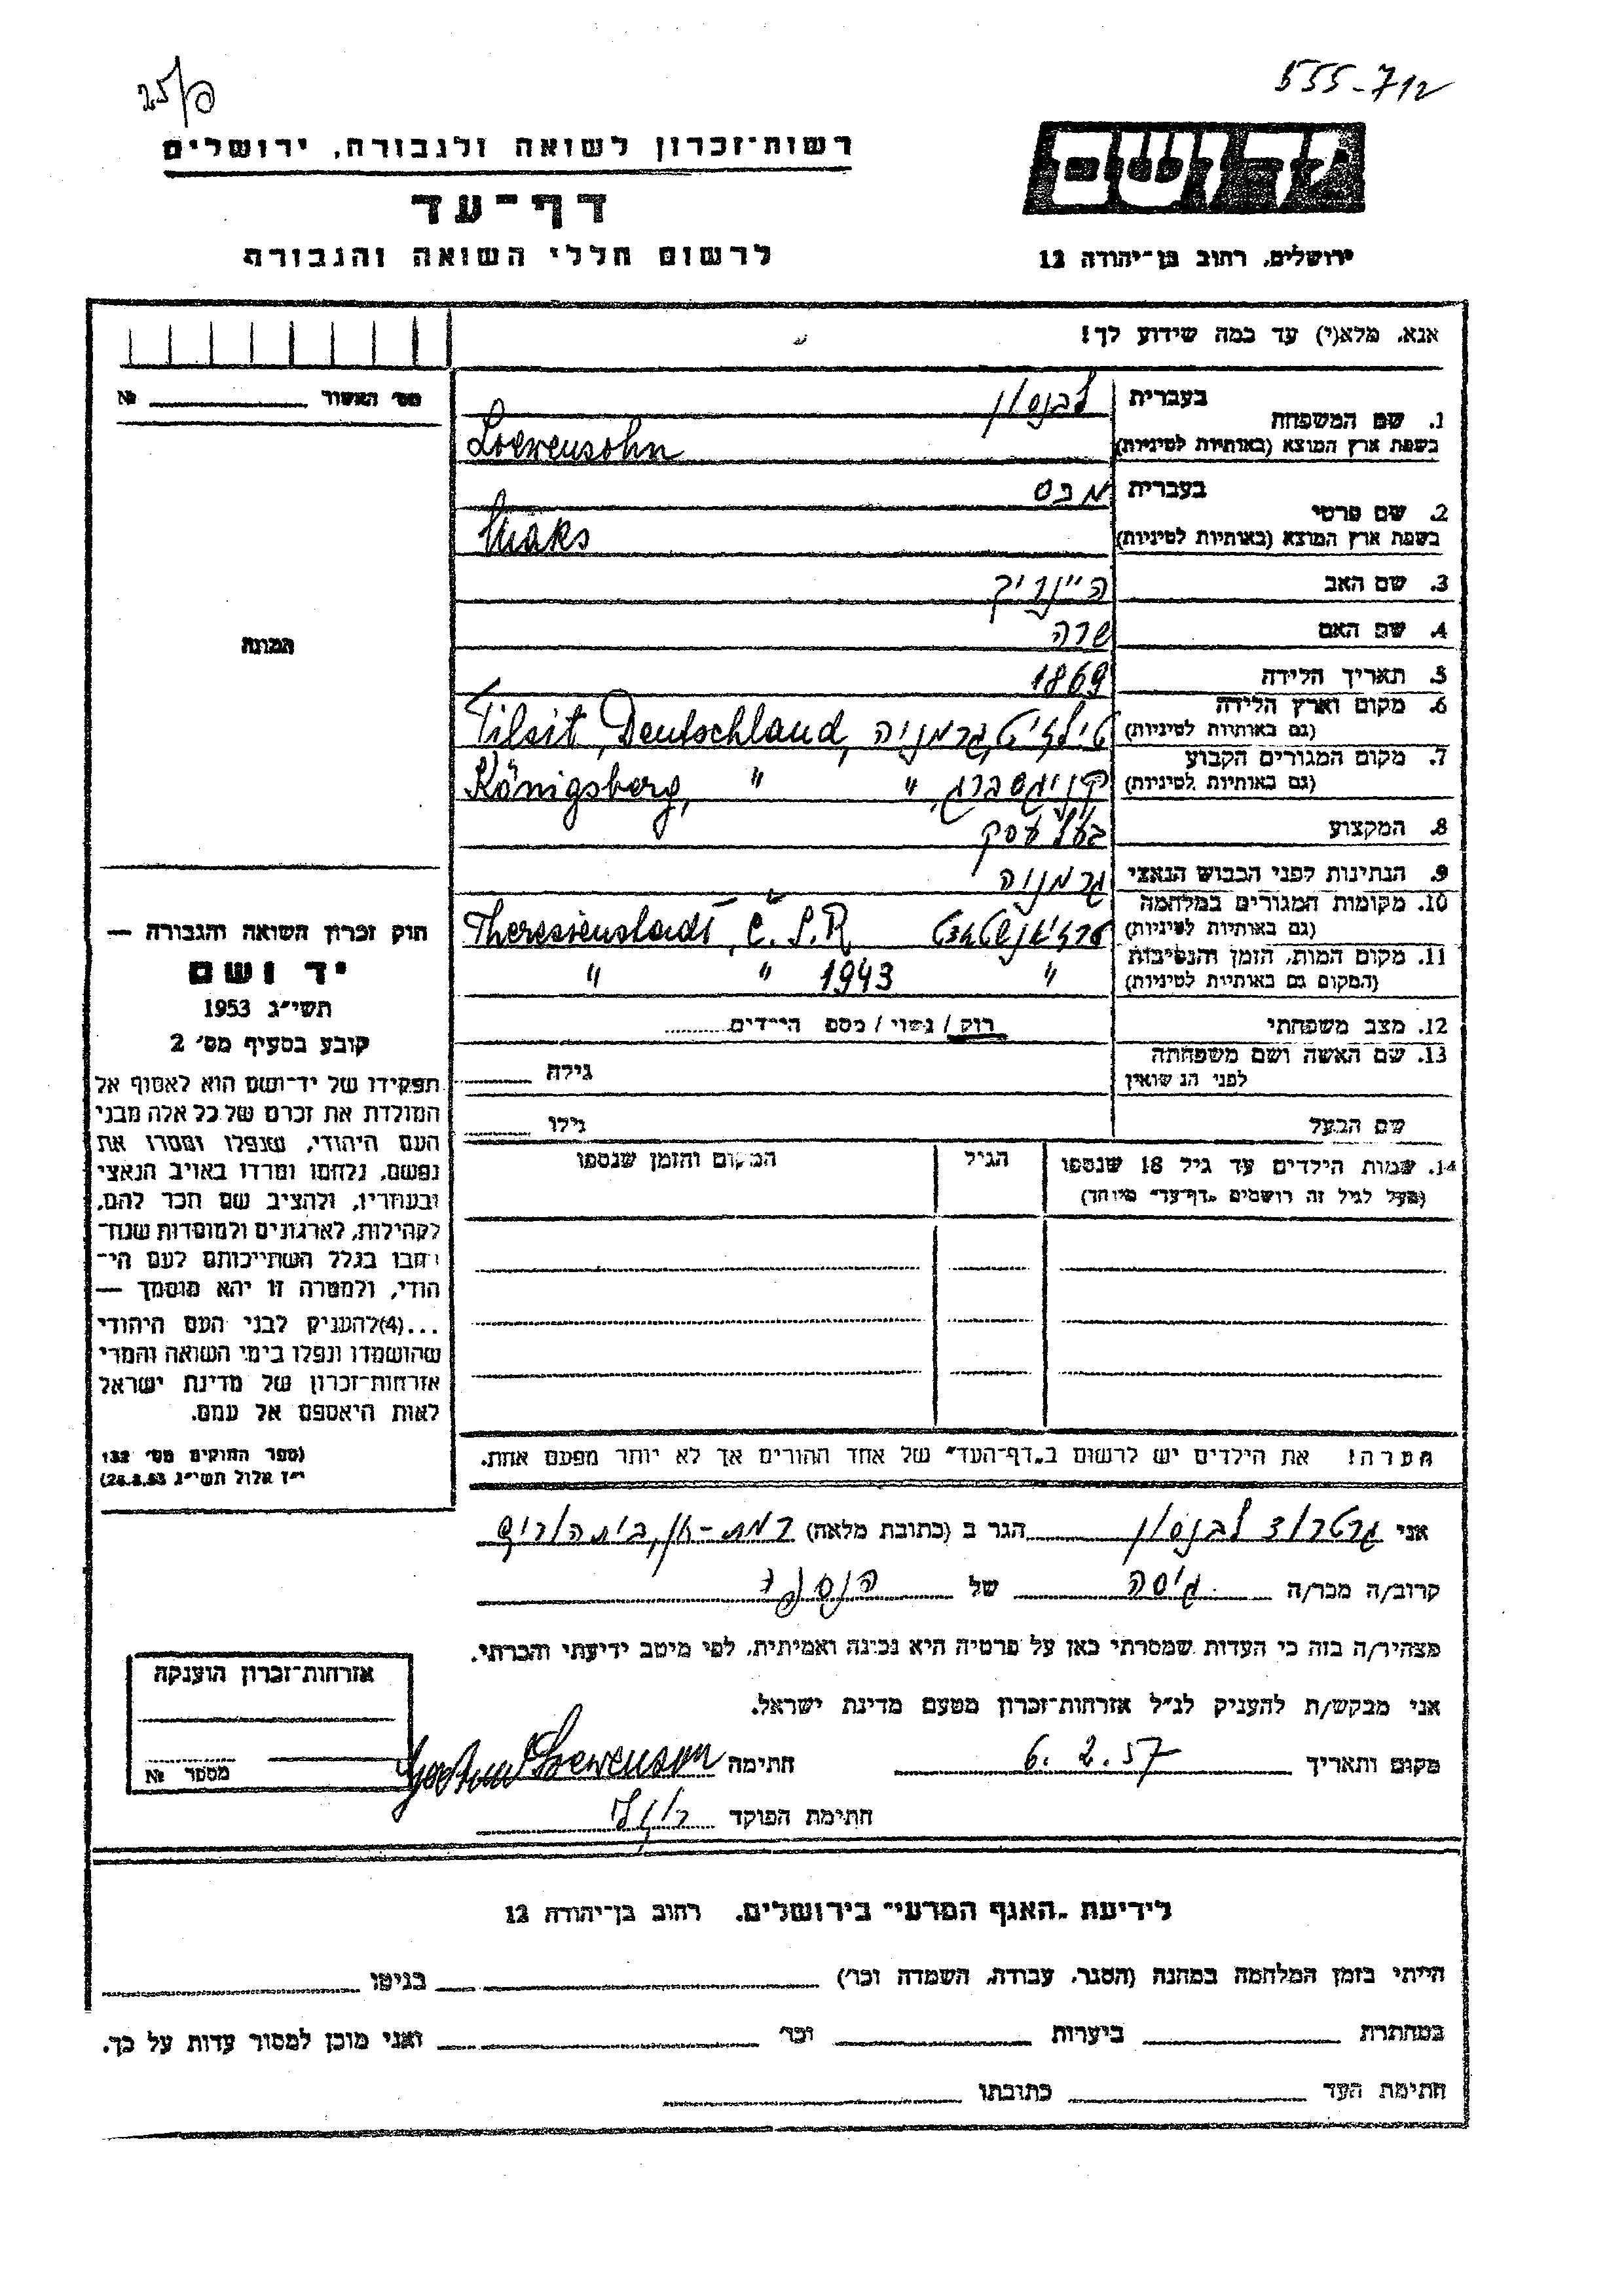 555-712
25/פ
יד ושם
ירושלים, רחוב בן־יהודה 12
רשות־זכרון לשואה ולגבורה, ירושלים
דף־עד
לרשום חללי השואה והגבורה
אנא, מלא(י) עד כמה שידוע לך!
מס׳ האשור № 
1. שם המשפחה
בעברית לבנסון
בשפת ארץ המוצא (באותיות לטיניות) Loewensohn
2. שם פרטי
בעברית מכס
בשפת ארץ המוצא (באותיות לטיניות) Maks
3. שם האב היינריך
4. שם האם שרה
5. תאריך הלידה 1869
6. מקום וארץ הלידה
(גם באותיות לטיניות) טילזיט, גרמניה, Tilsit, Deutschland
7. מקום המגורים הקבוע
(גם באותיות לטיניות) קניגסברג, " Königsberg, "
8. המקצוע בעל עסק
9. הנתינות לפני הכבוש הנאצי גרמניה
10. מקומות המגורים במלחמה
(גם באותיות לטיניות) טרזיאנשטאט Theresienstadt, Č.S.R
11. מקום המות, הזמן והנסיבות
(המקום גם באותיות לטיניות) " 1943 " "
12. מצב משפחתי רוק / נשוי / מספר הילדים
13. שם האשה ושם משפחתה
לפני הנשואין גילה
שם הבעל גילו
14. שמות הילדים עד גיל 18 שנספו הגיל המקום והזמן שנספו
(מעל לגיל זה רושמים „דף־עד״ מיוחד)
תמונה
חוק זכרון השואה והגבורה —
יד ושם
תשי״ג 1953
קובע בסעיף מס׳ 2
תפקידו של יד־ושם הוא לאסוף אל
המולדת את זכרם של כל אלה מבני
העם היהודי, שנפלו ומסרו את
נפשם, נלחמו ומרדו באויב הנאצי
ובעוזריו, ולהציב שם וזכר להם,
לקהילות, לארגונים ולמוסדות שנח־
רבו בגלל השתייכותם לעם הי־
הודי, ולמטרה זו יהא מוסמך —
...(4)להעניק לבני העם היהודי
שהושמדו ונפלו בימי השואה והמרי
אזרחות־זכרון של מדינת ישראל
לאות היאספם אל עמם.
(ספר החוקים מס׳ 132
י״ז אלול תשי״ג 28.8.53)
הערה! את הילדים יש לרשום ב„דף־העד״ של אחד ההורים אך לא יותר מפעם אחת.
אני גרטרוד לבנסון הגר ב (כתובת מלאה) רמת-גן,
קרוב/ה מכר/ה גיסה של הנספה
מצהיר/ה בזה כי העדות שמסרתי כאן על פרטיה היא נכונה ואמיתית, לפי מיטב ידיעתי והכרתי.
אני מבקש/ת להעניק לנ״ל אזרחות־זכרון מטעם מדינת ישראל.
מקום ותאריך 6.2.57 חתימה Loewenson
חתימת הפוקד
אזרחות־זכרון הוענקה
מספר №
לידיעת „האגף המדעי״ בירושלים, רחוב בן־יהודה 12
הייתי בזמן המלחמה במחנה (הסגר, עבודה, השמדה וכו׳) בגיטו
במחתרת ביערות וכו׳ ואני מוכן למסור עדות על כך.
חתימת העד כתובתו